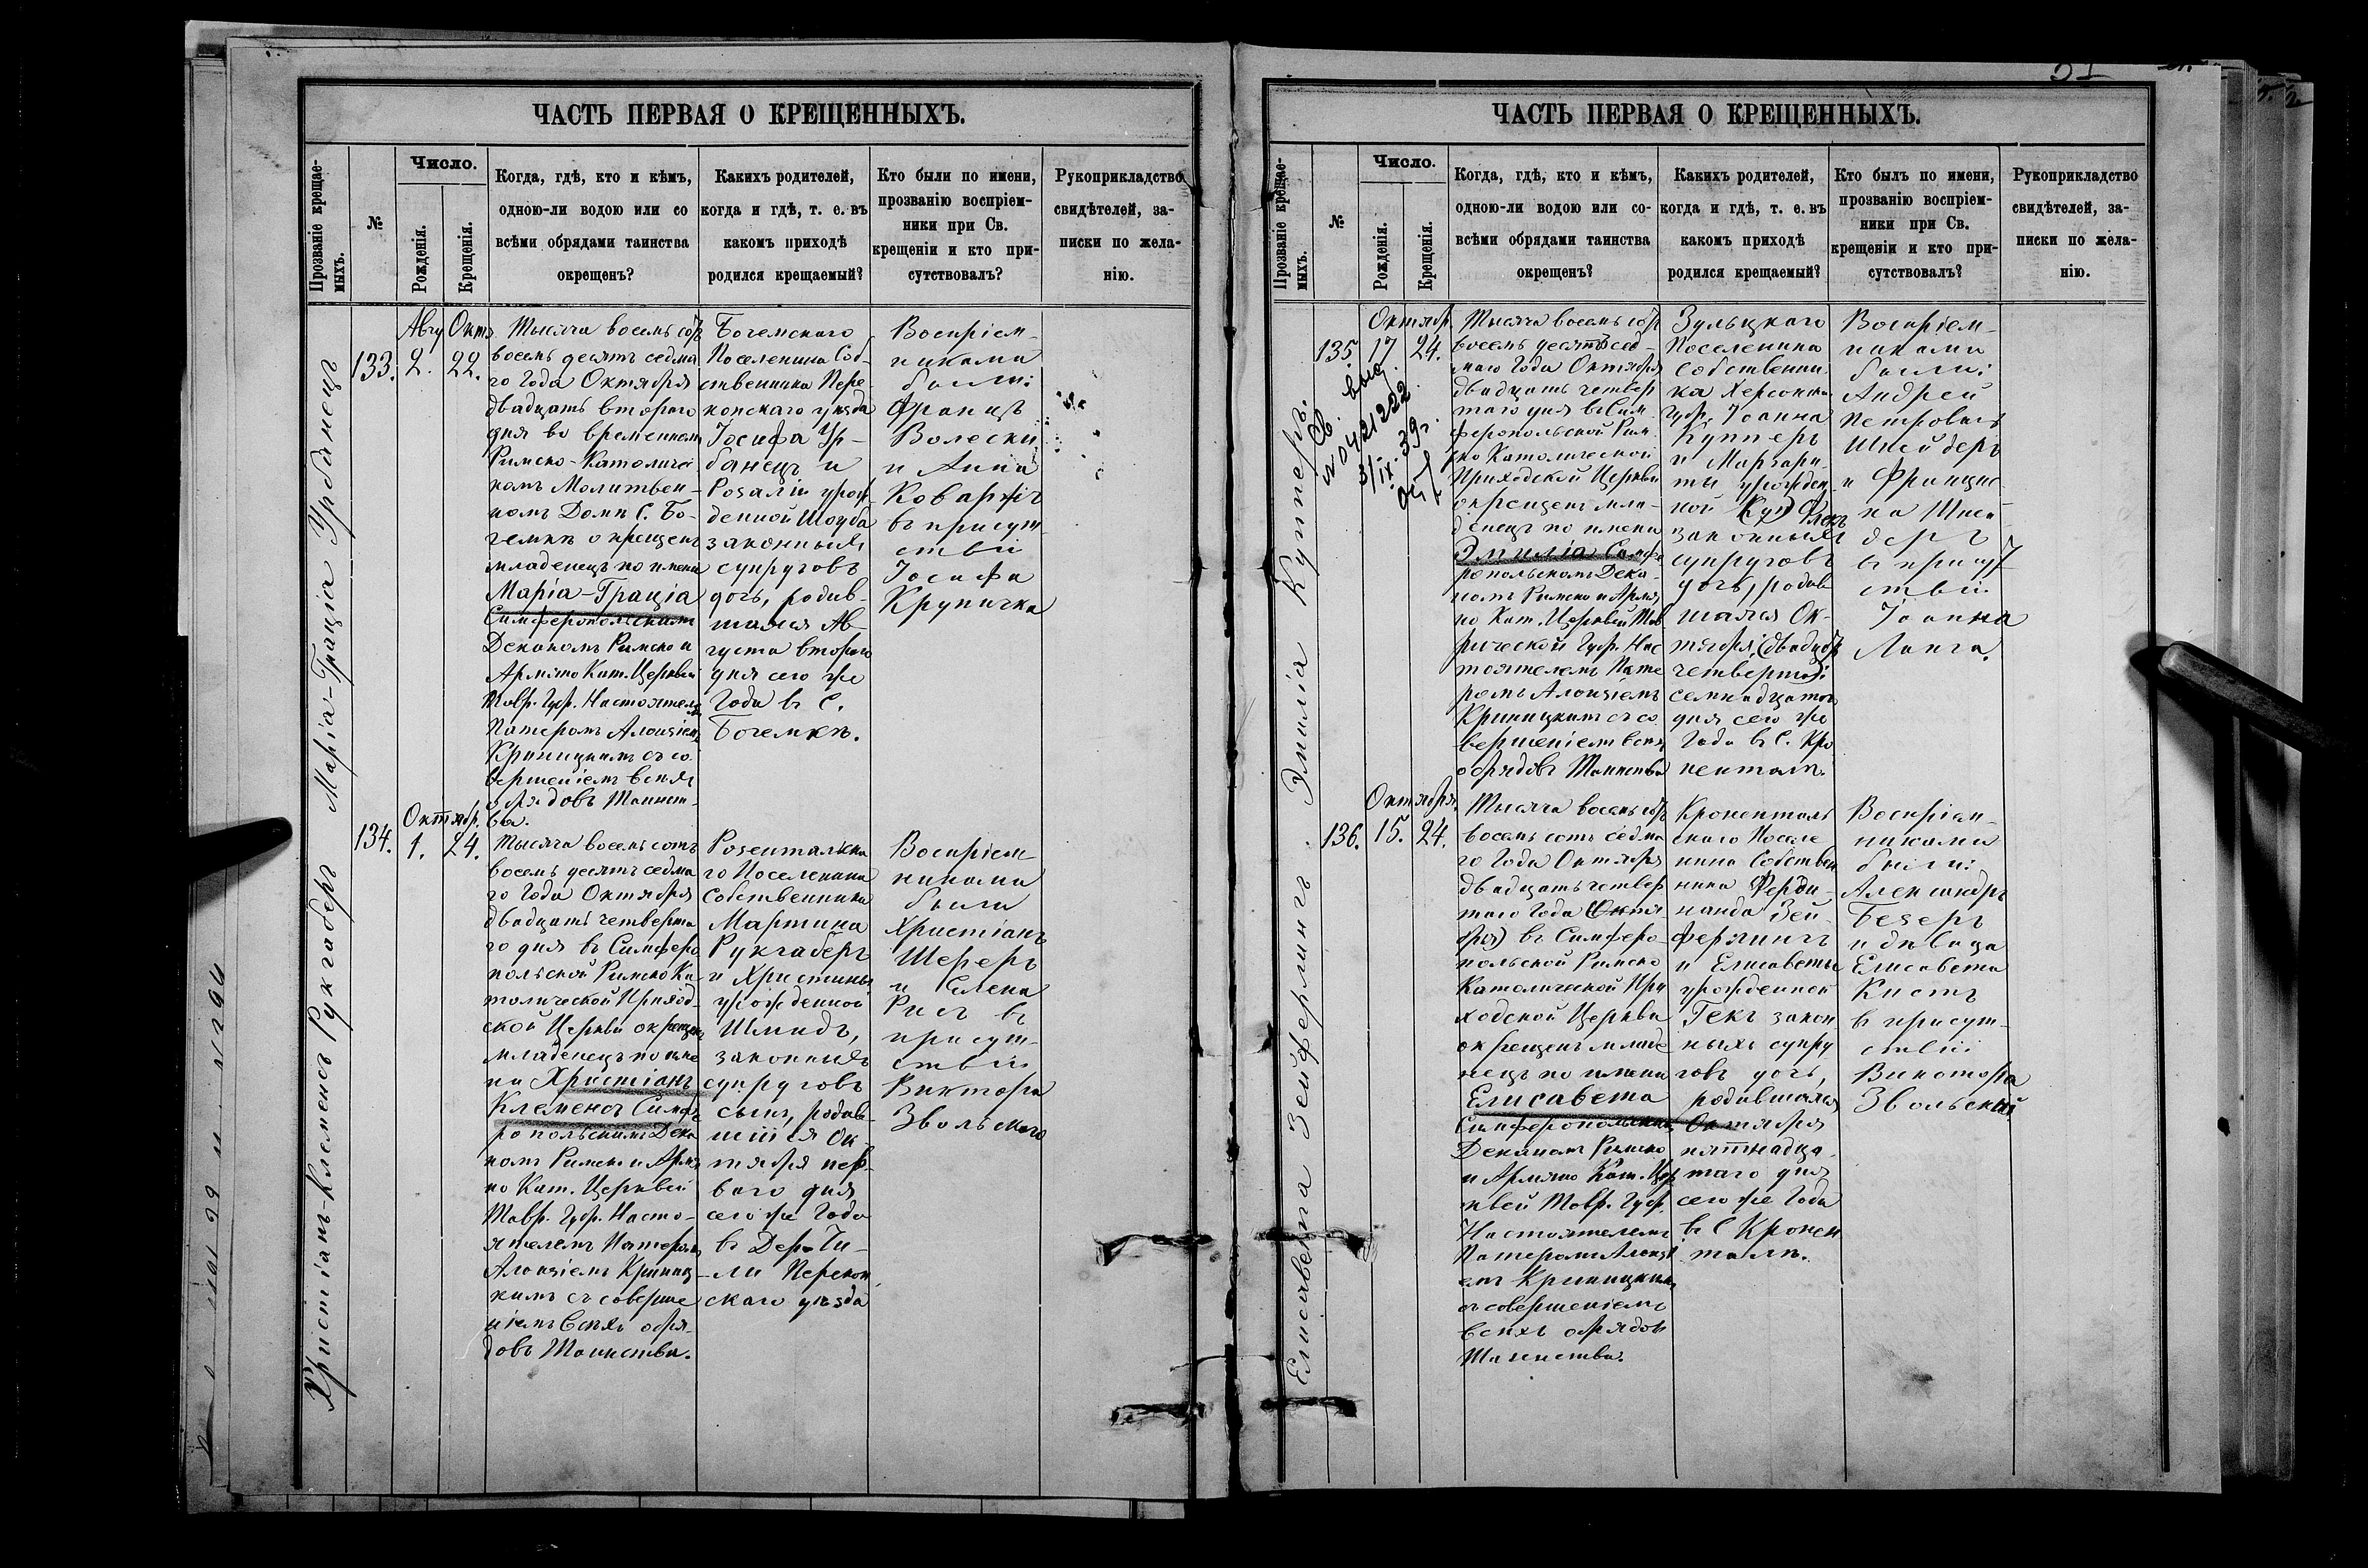 ЧАСТЬ ПЕРВАЯ О КРЕЩЕННЫХЪ.
Прозваніе крещае-
мыхъ.
№
Число.
Рожденія.
Крещенія.
Когда, гдѣ, кто и кѣмъ,
одною-ли водою или со
всѣми обрядами таинства
окрещенъ?
Какихъ родителей,
когда и гдѣ, т. е. въ
какомъ приходѣ
родился крещаемый?
Кто были по имени,
прозванію воспріем-
ники при Св.
крещеніи и кто при-
сутствовалъ?
Рукоприкладство
свидѣтелей, за-
писки по жела-
нію.
Марія-Грація Урбанецъ
133.
Авгу
2.
Октя
22.
Тысяча восемь сотъ
восемь десятъ седма
го Года Октября
двадцать втораго
дня во временномъ
Римско-Католичес
комъ Молитвен-
номъ Домѣ С. Бо-
гемкѣ окрещенъ
младенецъ по имени
Марія-Грація
Симферопольскимъ
Деканомъ Римско и
Армяно Кат. Церквей
Тавр. Губ. Настоятелемъ
Патеромъ Алоизіемъ
Криницкимъ съ со
вершеніемъ всѣхъ
обрядовъ Таинст-
ва.
Богемскаго
Поселенина Соб-
ственника Пере-
копскаго уѣзда
Іосифа Ур-
банецъ и
Розаліи урож-
денной Шауба
законныхъ
супруговъ
дочь, родив-
шаяся Ав-
густа втораго
дня сего же
Года въ С.
Богемкѣ.
Воспріем-
никами
были:
Францъ
Волески
и Анна
Коваржъ
въ присут-
ствіи
Іосифа
Крупичка
Христіанъ-Клеменсъ Рукгаберъ
134.
Октябр.
1.
24.
Тысяча восемь сотъ
восемь десятъ седма
го Года Октября
двадцать четверта
го дня въ Симферо
польской Римско Ка
толической Приход-
ской Церкви окрещенъ
младенецъ по име
ни Христіанъ
Клеменсъ Симфе
ропольскимъ Дека
номъ Римско и Армя
но Кат. Церквей
Тавр. Губ. Насто-
ятелемъ Патеромъ
Алоизіемъ Криниц-
кимъ съ соверше
ніемъ всѣхъ обря-
довъ Таинства.
Розентальска
го Поселенина
Собственника
Мартина
Рукгаберъ
и Христины
урожденной
Шмидъ,
законныхъ
супруговъ
сынъ, родив-
шійся Ок-
тября пер-
ваго дня
сего же Года
въ Дер. Чи-
ли Перекоп
скаго уѣзда
Воспріем
никами
были
Христіанъ
Шереръ
и Елена
Рисъ въ
присут-
ствіи
Виктора
Звольскаго
ЧАСТЬ ПЕРВАЯ О КРЕЩЕННЫХЪ.
Прозваніе крещае-
мыхъ.
№
Число.
Рожденія.
Крещенія.
Когда, гдѣ, кто и кѣмъ,
одною-ли водою или со-
всѣми обрядами таинства
окрещенъ?
Какихъ родителей,
когда и гдѣ, т. е. въ
какомъ приходѣ
родился крещаемый?
Кто былъ по имени,
прозванію воспріем-
ники при Св.
крещеніи и кто при-
сутствовалъ?
Рукоприкладство
свидѣтелей, за-
писки по жела-
нію.
Эмилія Купперъ.
135
Октябр.
17
24.
№ 0421222
3/IX. 39 г.
Тысяча восемь сотъ
восемь десятъ сед-
маго Года Октября
двадцать четвер
таго дня въ Сим
феропольской Рим
ско Католической
Приходской Церкви
окрещенъ мла-
денецъ по имени
Эмилія Симфе
ропольскимъ Дека-
номъ Римско и Армя
но Кат. Церквей Тав
рической Губ. Нас
тоятелемъ Пате
ромъ Алоизіемъ
Криницкимъ съ со
вершеніемъ всѣхъ
обрядовъ Таинства
Зульцкаго
Поселенина
Собственни
ка Херсонск.
Губ. Іоанна
Купперъ
и Маргари-
ты урожден
ной
законныхъ
супруговъ
дочь, родив
шаяся Ок-
тября (двадцать
четвертаго)
семнадцатаго
дня сего же
Года въ С. Кро
ненталѣ.
Воспріем-
никами
были:
Андрей
Петровичъ
Шнейдеръ
и Францис
ка Шней
деръ
въ присут
ствіи
Іоанна
Ланга.
Елисавета Зейферлингъ.
136.
Октября
15.
24.
Тысяча восемь сотъ
восемь сотъ седма
го Года Октября
двадцать четвер
таго Года (Октя-
бря) въ Симферо-
польской Римско
Католической При
ходской Церкви
окрещенъ младе
нецъ по имени
Елисавета
Симферопольскимъ
Деканомъ Римско
и Армяно Кат. Цер
квей Тавр. Губ.
Настоятелемъ
Патеромъ Алоизі
емъ Криницкимъ
съ совершеніемъ
всѣхъ обрядовъ
Таинства.
Кроненталь
скаго Поселе
нина Собствен
ника Ферди-
нанда Зей-
ферлингъ
и Елисаветы
урожденной
Гекъ закон
ныхъ супру
говъ дочь,
родившаяся
Октября
пятнадца-
таго дня
сего же Года
въ С Кронен
талѣ.
Воспріем-
никами
были:
Александръ
Безеръ
и дѣвица
Елисавета
Кистъ
въ присут-
ствіи
Виктора
Звольскаго